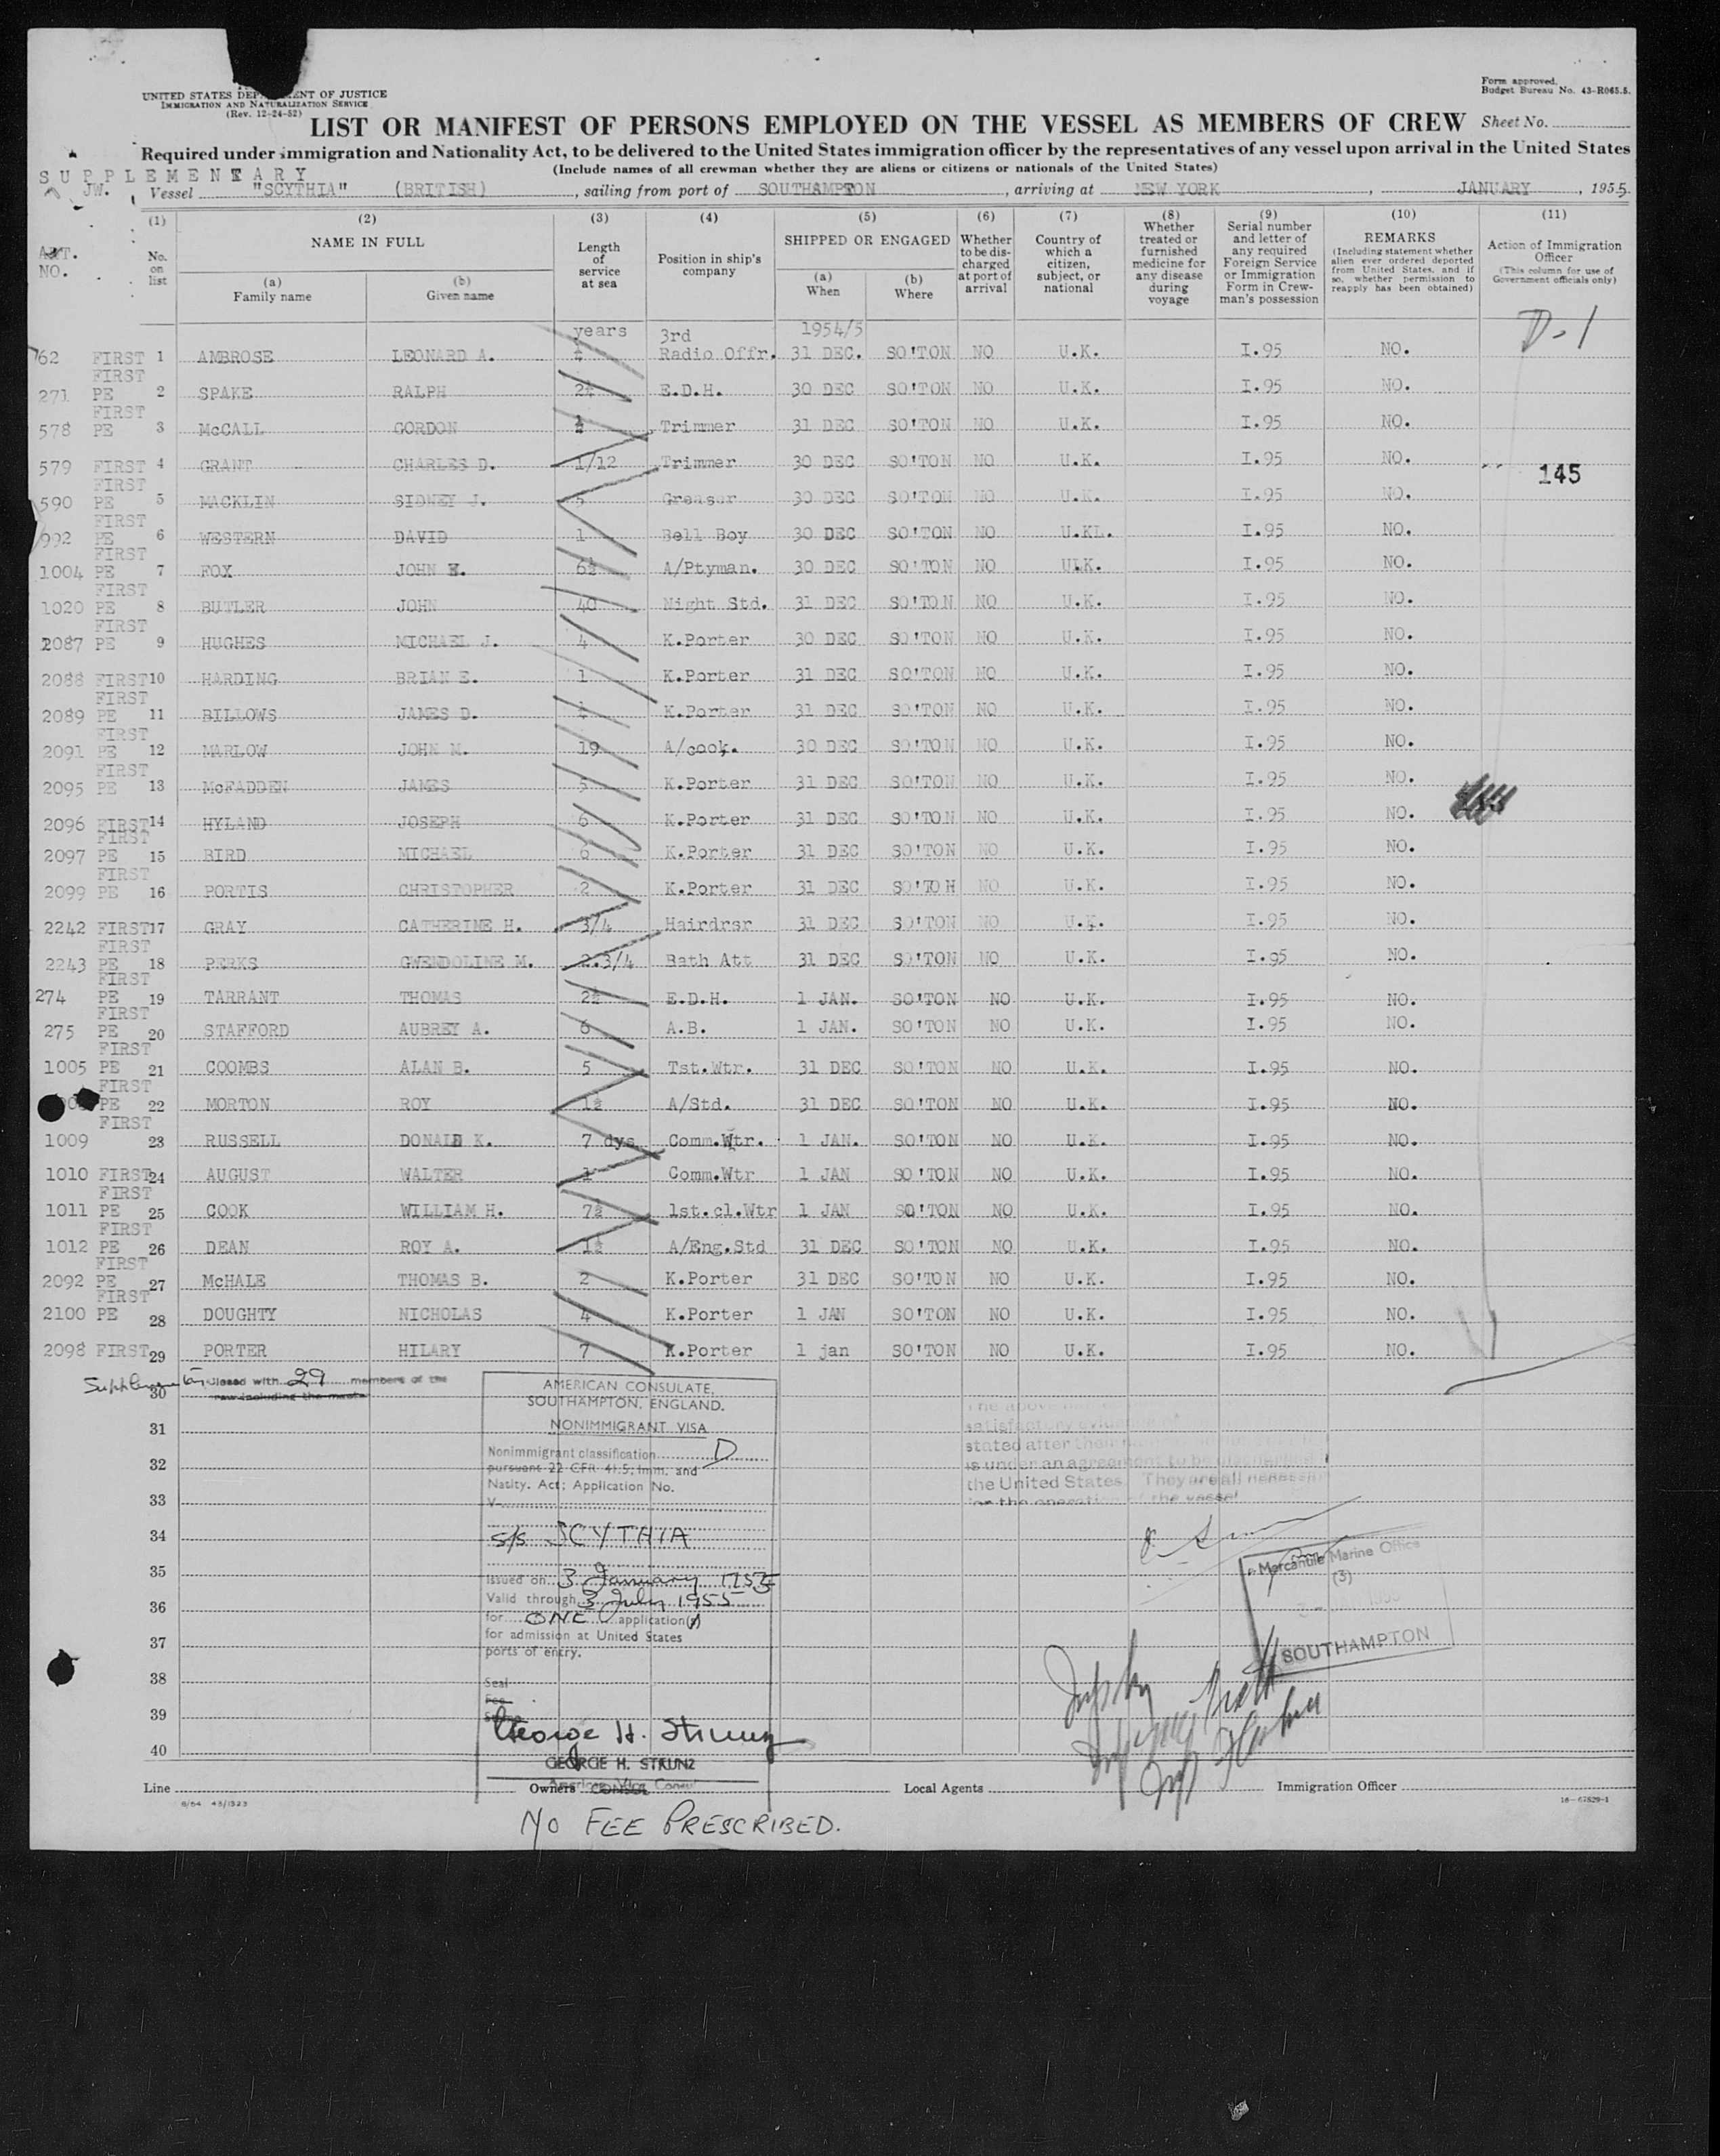 UNITED STATES DEP ENT OF JUSTICE
IMMIGRATION AND NATURALIZATION SERVICE
(Rev. 12-24-52)
Form approved.
Budget Bureau No. 43-R065.5.
LIST OR MANIFEST OF PERSONS EMPLOYED ON THE VESSEL AS MEMBERS OF CREW Sheet No.
Required under immigration and Nationality Act, to be delivered to the United States immigration officer by the representatives of any vessel upon arrival in the United States
(Include names of all crewman whether they are aliens or citizens or nationals of the United States)
SUPPLEMENTARY
JW. Vessel "SCYTHIA" (BRITISH), sailing from port of SOUTHAMPTON, arriving at NEW YORK, JANUARY, 1955.
(1) (2) (3) (4) (5) (6) (7) (8) (9) (10) (11)
ART. NO. No. on list NAME IN FULL (a) Family name (b) Given name Length of service at sea Position in ship's company SHIPPED OR ENGAGED (a) When (b) Where Whether to be discharged at port of arrival Country of which a citizen, subject, or national Whether treated or furnished medicine for any disease during voyage Serial number and letter of any required Foreign Service or Immigration Form in Crewman's possession REMARKS (Including statement whether alien ever ordered deported from United States, and if so, whether permission to reapply has been obtained) Action of Immigration Officer (This column for use of Government officials only)
years 3rd 1954/5 D-1
762 FIRST 1 AMBROSE LEONARD A. Radio Offr. 31 DEC. SO'TON NO U.K. I.95 NO.
FIRST
271 PE 2 SPAKE RALPH E.D.H. 30 DEC SO'TON NO U.K. I.95 NO.
FIRST
578 PE 3 McCALL GORDON Trimmer 31 DEC SO'TON NO U.K. I.95 NO.
579 FIRST 4 GRANT CHARLES D. 1/12 Trimmer 30 DEC SO'TON NO U.K. I.95 NO. 145
FIRST
590 PE 5 MACKLIN SIDNEY J. 5 Greaser 30 DEC SO'TON NO U.K. I.95 NO.
FIRST
992 PE 6 WESTERN DAVID 1 Bell Boy 30 DEC SO'TON NO U.KL. I.95 NO.
FIRST
1004 PE 7 FOX JOHN 6½ A/Ptyman. 30 DEC SO'TON NO U.K. I.95 NO.
FIRST
1020 PE 8 BUTLER JOHN 40 Night Std. 31 DEC SO'TON NO U.K. I.95 NO.
FIRST
2087 PE 9 HUGHES MICHAEL J. 4 K.Porter 30 DEC SO'TON NO U.K. I.95 NO.
2088 FIRST 10 HARDING BRIAN E. 1 K.Porter 31 DEC SO'TON NO U.K. I.95 NO.
FIRST
2089 PE 11 BILLOWS JAMES D. K.Porter 31 DEC SO'TON NO U.K. I.95 NO.
FIRST
2091 PE 12 MARLOW JOHN M. 19 A/cook. 30 DEC SO'TON NO U.K. I.95 NO.
FIRST
2095 PE 13 McFADDEN JAMES 5 K.Porter 31 DEC SO'TON NO U.K. I.95 NO.
2096 FIRST 14 HYLAND JOSEPH 6 K.Porter 31 DEC SO'TON NO U.K. I.95 NO.
FIRST
2097 PE 15 BIRD MICHAEL 6 K.Porter 31 DEC SO'TON NO U.K. I.95 NO.
FIRST
2099 PE 16 PORTIS CHRISTOPHER 2 K.Porter 31 DEC SO'TON NO U.K. I.95 NO.
2242 FIRST 17 GRAY CATHERINE H. 3/4 Hairdrsr 31 DEC SO'TON NO U.K. I.95 NO.
FIRST
2243 PE 18 PERKS GWENDOLINE M. 2.3/4 Bath Att 31 DEC SO'TON NO U.K. I.95 NO.
FIRST
274 PE 19 TARRANT THOMAS 2½ E.D.H. 1 JAN. SO'TON NO U.K. I.95 NO.
FIRST
275 PE 20 STAFFORD AUBREY A. 6 A.B. 1 JAN. SO'TON NO U.K. I.95 NO.
FIRST
1005 PE 21 COOMBS ALAN B. 5 Tst.Wtr. 31 DEC SO'TON NO U.K. I.95 NO.
FIRST
PE 22 MORTON ROY 1½ A/Std. 31 DEC SO'TON NO U.K. I.95 NO.
FIRST
1009 23 RUSSELL DONALD K. 7 dys Comm.Wtr. 1 JAN. SO'TON NO U.K. I.95 NO.
1010 FIRST 24 AUGUST WALTER 1 Comm.Wtr 1 JAN SO'TON NO U.K. I.95 NO.
FIRST
1011 PE 25 COOK WILLIAM H. 7½ 1st.cl.Wtr 1 JAN SO'TON NO U.K. I.95 NO.
FIRST
1012 PE 26 DEAN ROY A. 1½ A/Eng.Std 31 DEC SO'TON NO U.K. I.95 NO.
FIRST
2092 PE 27 McHALE THOMAS B. 2 K.Porter 31 DEC SO'TON NO U.K. I.95 NO.
FIRST
2100 PE 28 DOUGHTY NICHOLAS 4 K.Porter 1 JAN SO'TON NO U.K. I.95 NO.
2098 FIRST 29 PORTER HILARY 7 K.Porter 1 jan SO'TON NO U.K. I.95 NO.
closed with 29 members of the
30 crew including the master
31
32
33
34
35
36
37
38
39
40
AMERICAN CONSULATE,
SOUTHAMPTON, ENGLAND.
NONIMMIGRANT VISA
Nonimmigrant classification D
pursuant 22 CFR 41.5; Imm. and
Natity. Act; Application No.
V
S/S SCYTHIA
Issued on 3 January 1955
Valid through 3 July 1955
for ONE application(s)
for admission at United States
ports of entry.
Seal
Fee
George H. Strunz
GEORGE H. STRUNZ
American Vice Consul
The above
satisfactory
stated after their
is under an agreement to be
the United States. They are all
for the operation of the vessel
Mercantile Marine Office
(3)
SOUTHAMPTON
Line Owners Local Agents Immigration Officer
16-67529-1
NO FEE PRESCRIBED.